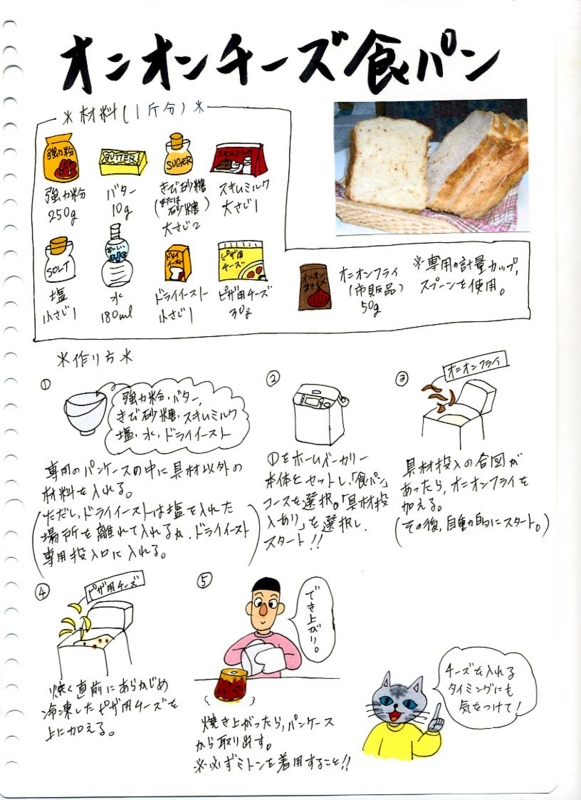 オニオンチーズ食パン
＊材料(1斤分)＊
強力粉
BUTTER
SUGER
強力粉
250g
バター
10g
きび砂糖
(または
砂糖)
大さじ2
スキムミルク
大さじ1
SOLT
おいしい
水
ドライ
イースト
ピザ用
チーズ
塩
小さじ1
水
180ml
ドライイースト
小さじ1
ピザ用チーズ
30g
オニオン
オニオンフライ
(市販品)
50g
※専用の計量カップ、
スプーンを使用。
＊作り方＊
①
強力粉・バター、
きび砂糖・スキムミルク
塩・水・ドライイースト
専用のパンケースの中に具材以外の
材料を入れる。
(ただし、ドライイーストは塩を入れた
場所を離れて入れるか、ドライイースト
専用投入口に入れる。)
②
①をホームベーカリー
本体にセットし、「食パン」
コースを選択。「具材投
入あり」を選択し、
スタート!!
③
オニオンフライ
具材投入の合図が
あったら、オニオンフライを
加える。
(その後、自動的にスタート。)
④
ピザ用チーズ
焼く直前にあらかじめ
冷凍したピザ用チーズを
上に加える。
⑤
でき上がり。
焼き上がったら、パンケース
から取り出す。
※必ずミトンを着用すること!!
チーズを入れる
タイミングにも
気をつけて!